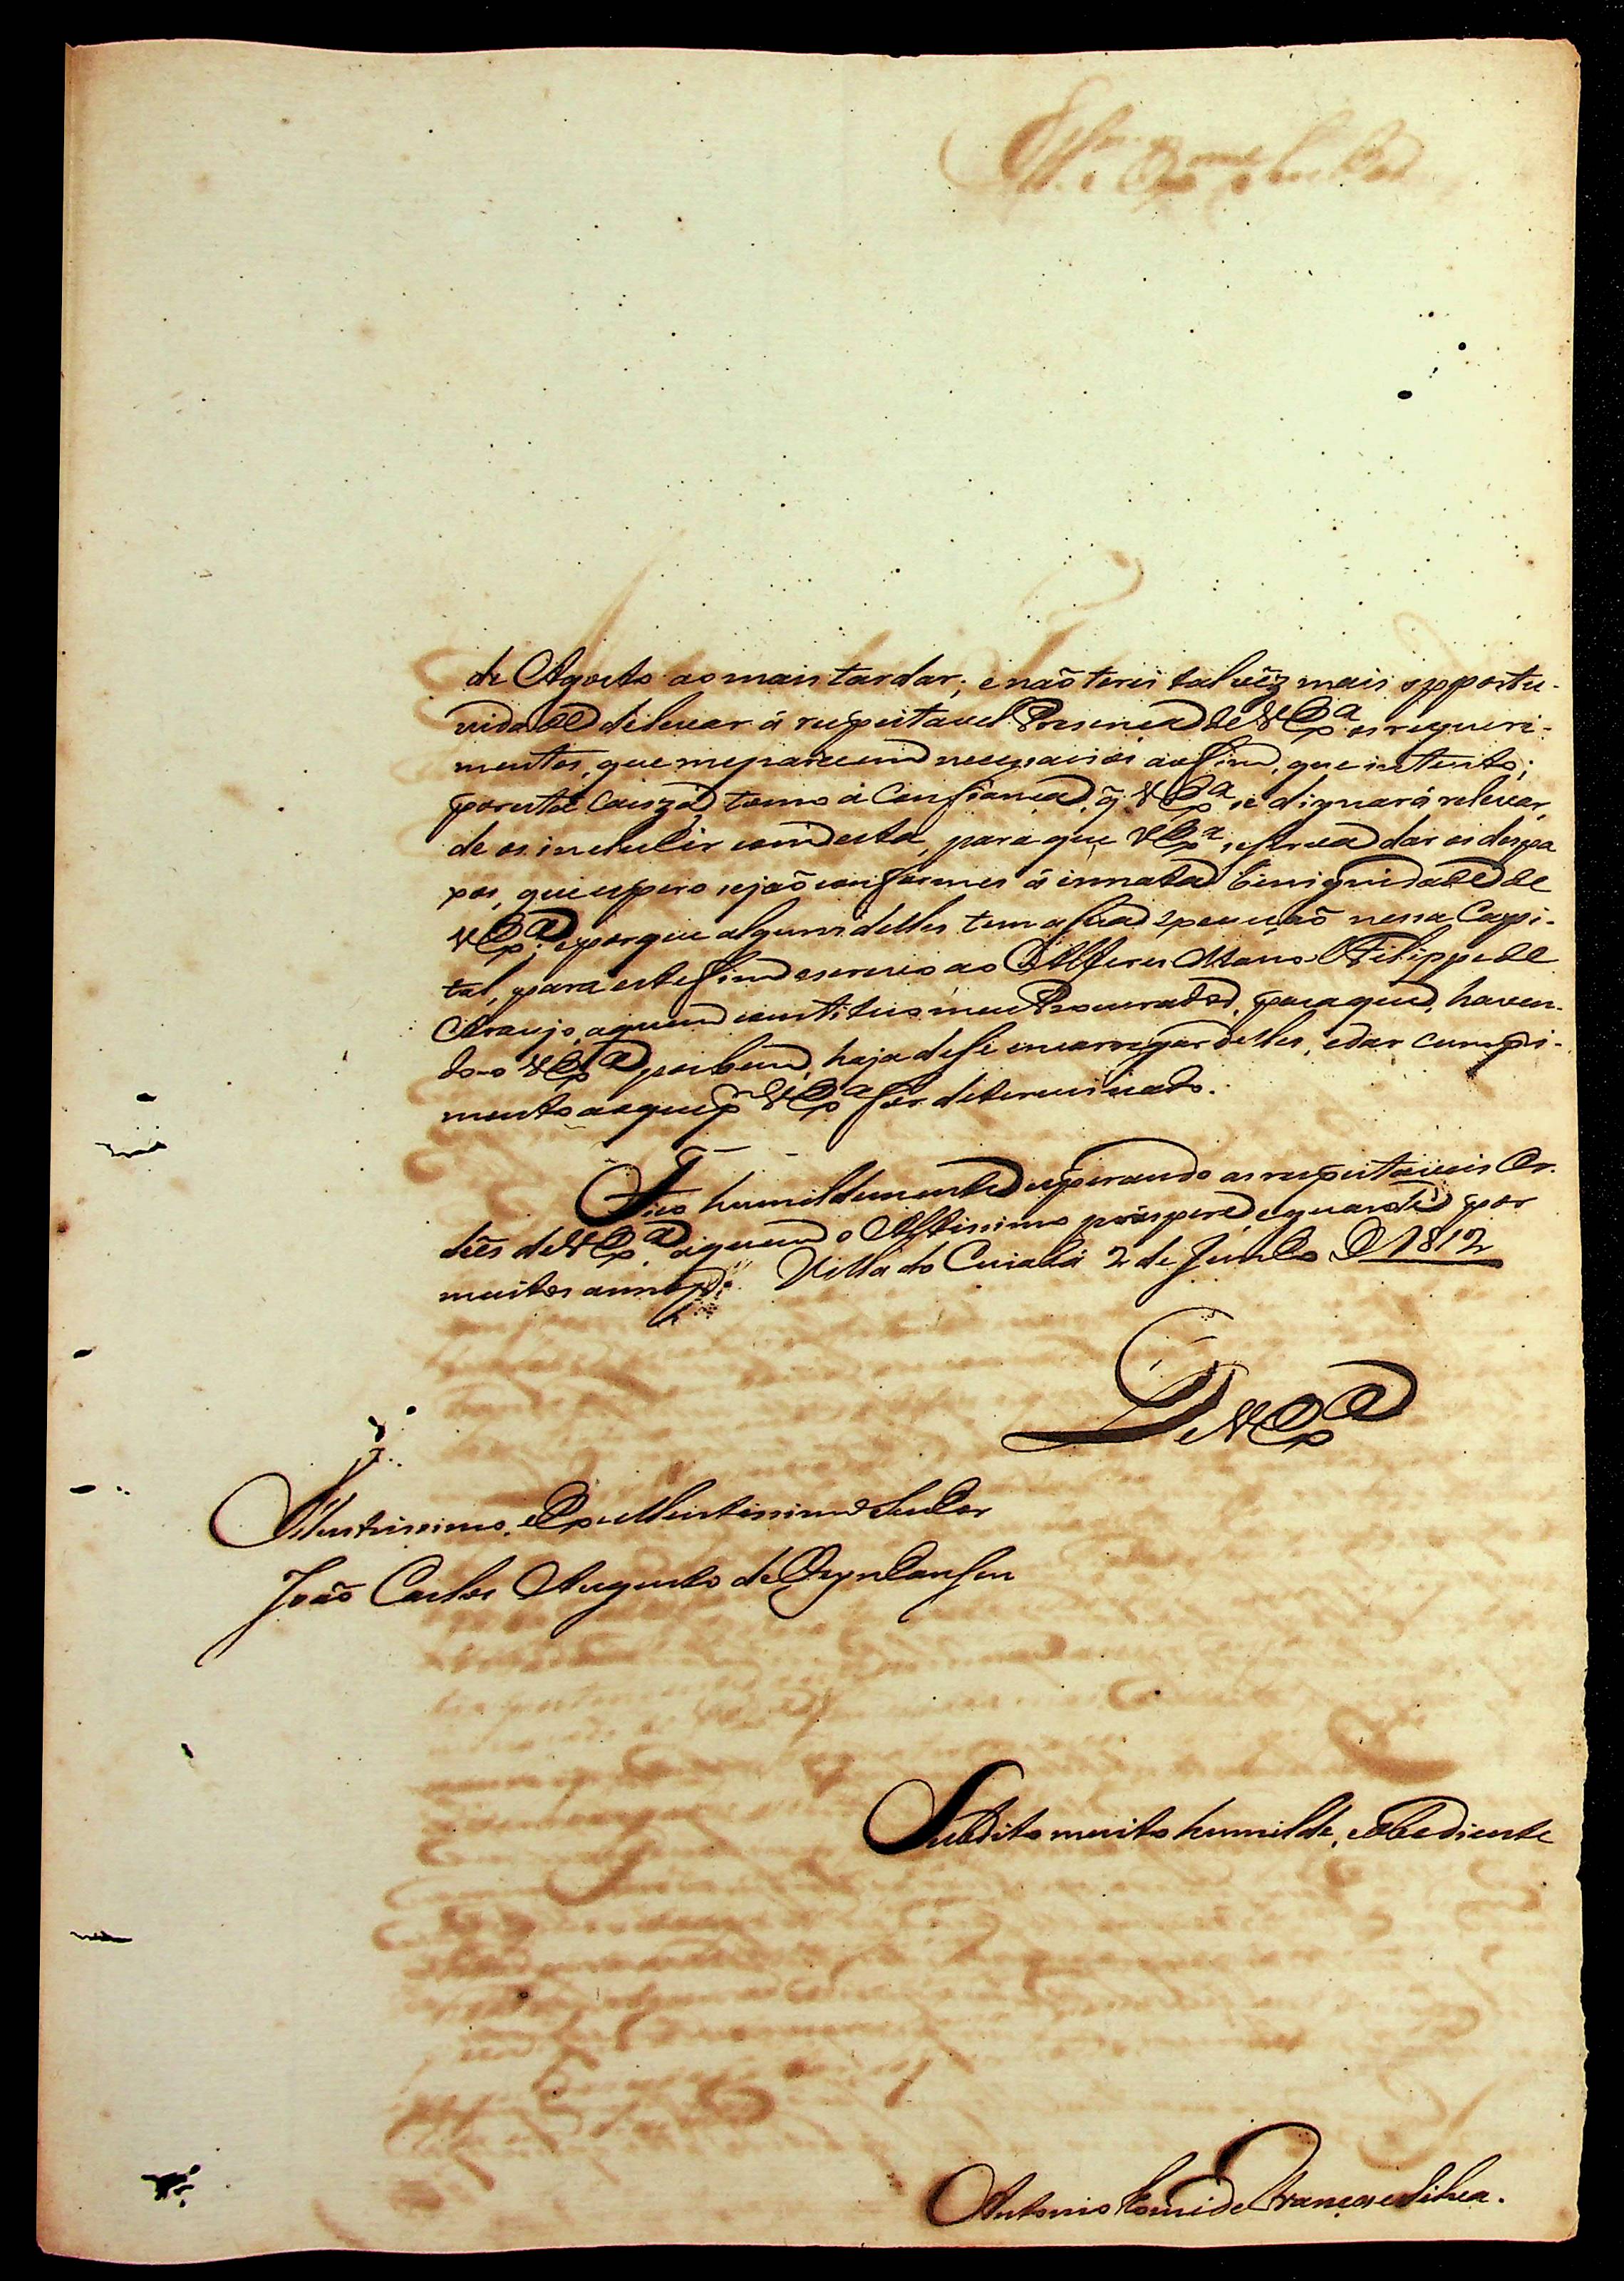 de Agosto ao mais tardar; e não terei talvêz mais opportu-
nidade de levar á respeitavel Prezença de V Exª os requeri-
mentos, que me parecem necessarios ao fim, que intento;
por esta cauza, tomo a confiança, q̃ V Exª se dignará relevar,
de os incluir com esta, para que V Exª se sirva dar os despa
xos, que espero sejão conformes á innata benignidade de
V Exª: e porque alguns delles tem a sua execução nessa Capi-
tal, para este fim escrevo ao Alferes Mano Filippe de
Araujo, a quem constituo meu Procurador, para que, haven-
do-o V Exª por bem, haja de se encarregar delles, e dar cumpri-
mento ao que pr V Exª for determinado.
Fico humildemente esperando as respeitaveis Or-
dẽs de V Exª a quem o Altissimo prospere, e guarde por
muitos annos. Villa do Cuiabá 2 de Junho D 1812
De V Exª
Illustrissimo, e Excellentissimo Senhor
João Carlos Augusto de Oeynhausen
Subdito muito humilde, e obediente
Antonio de França e Silva.